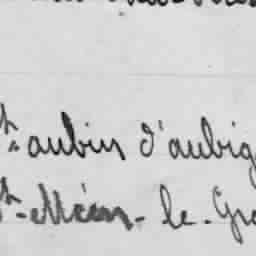 St-aubin d'aubig
St-Méen-le-Gra